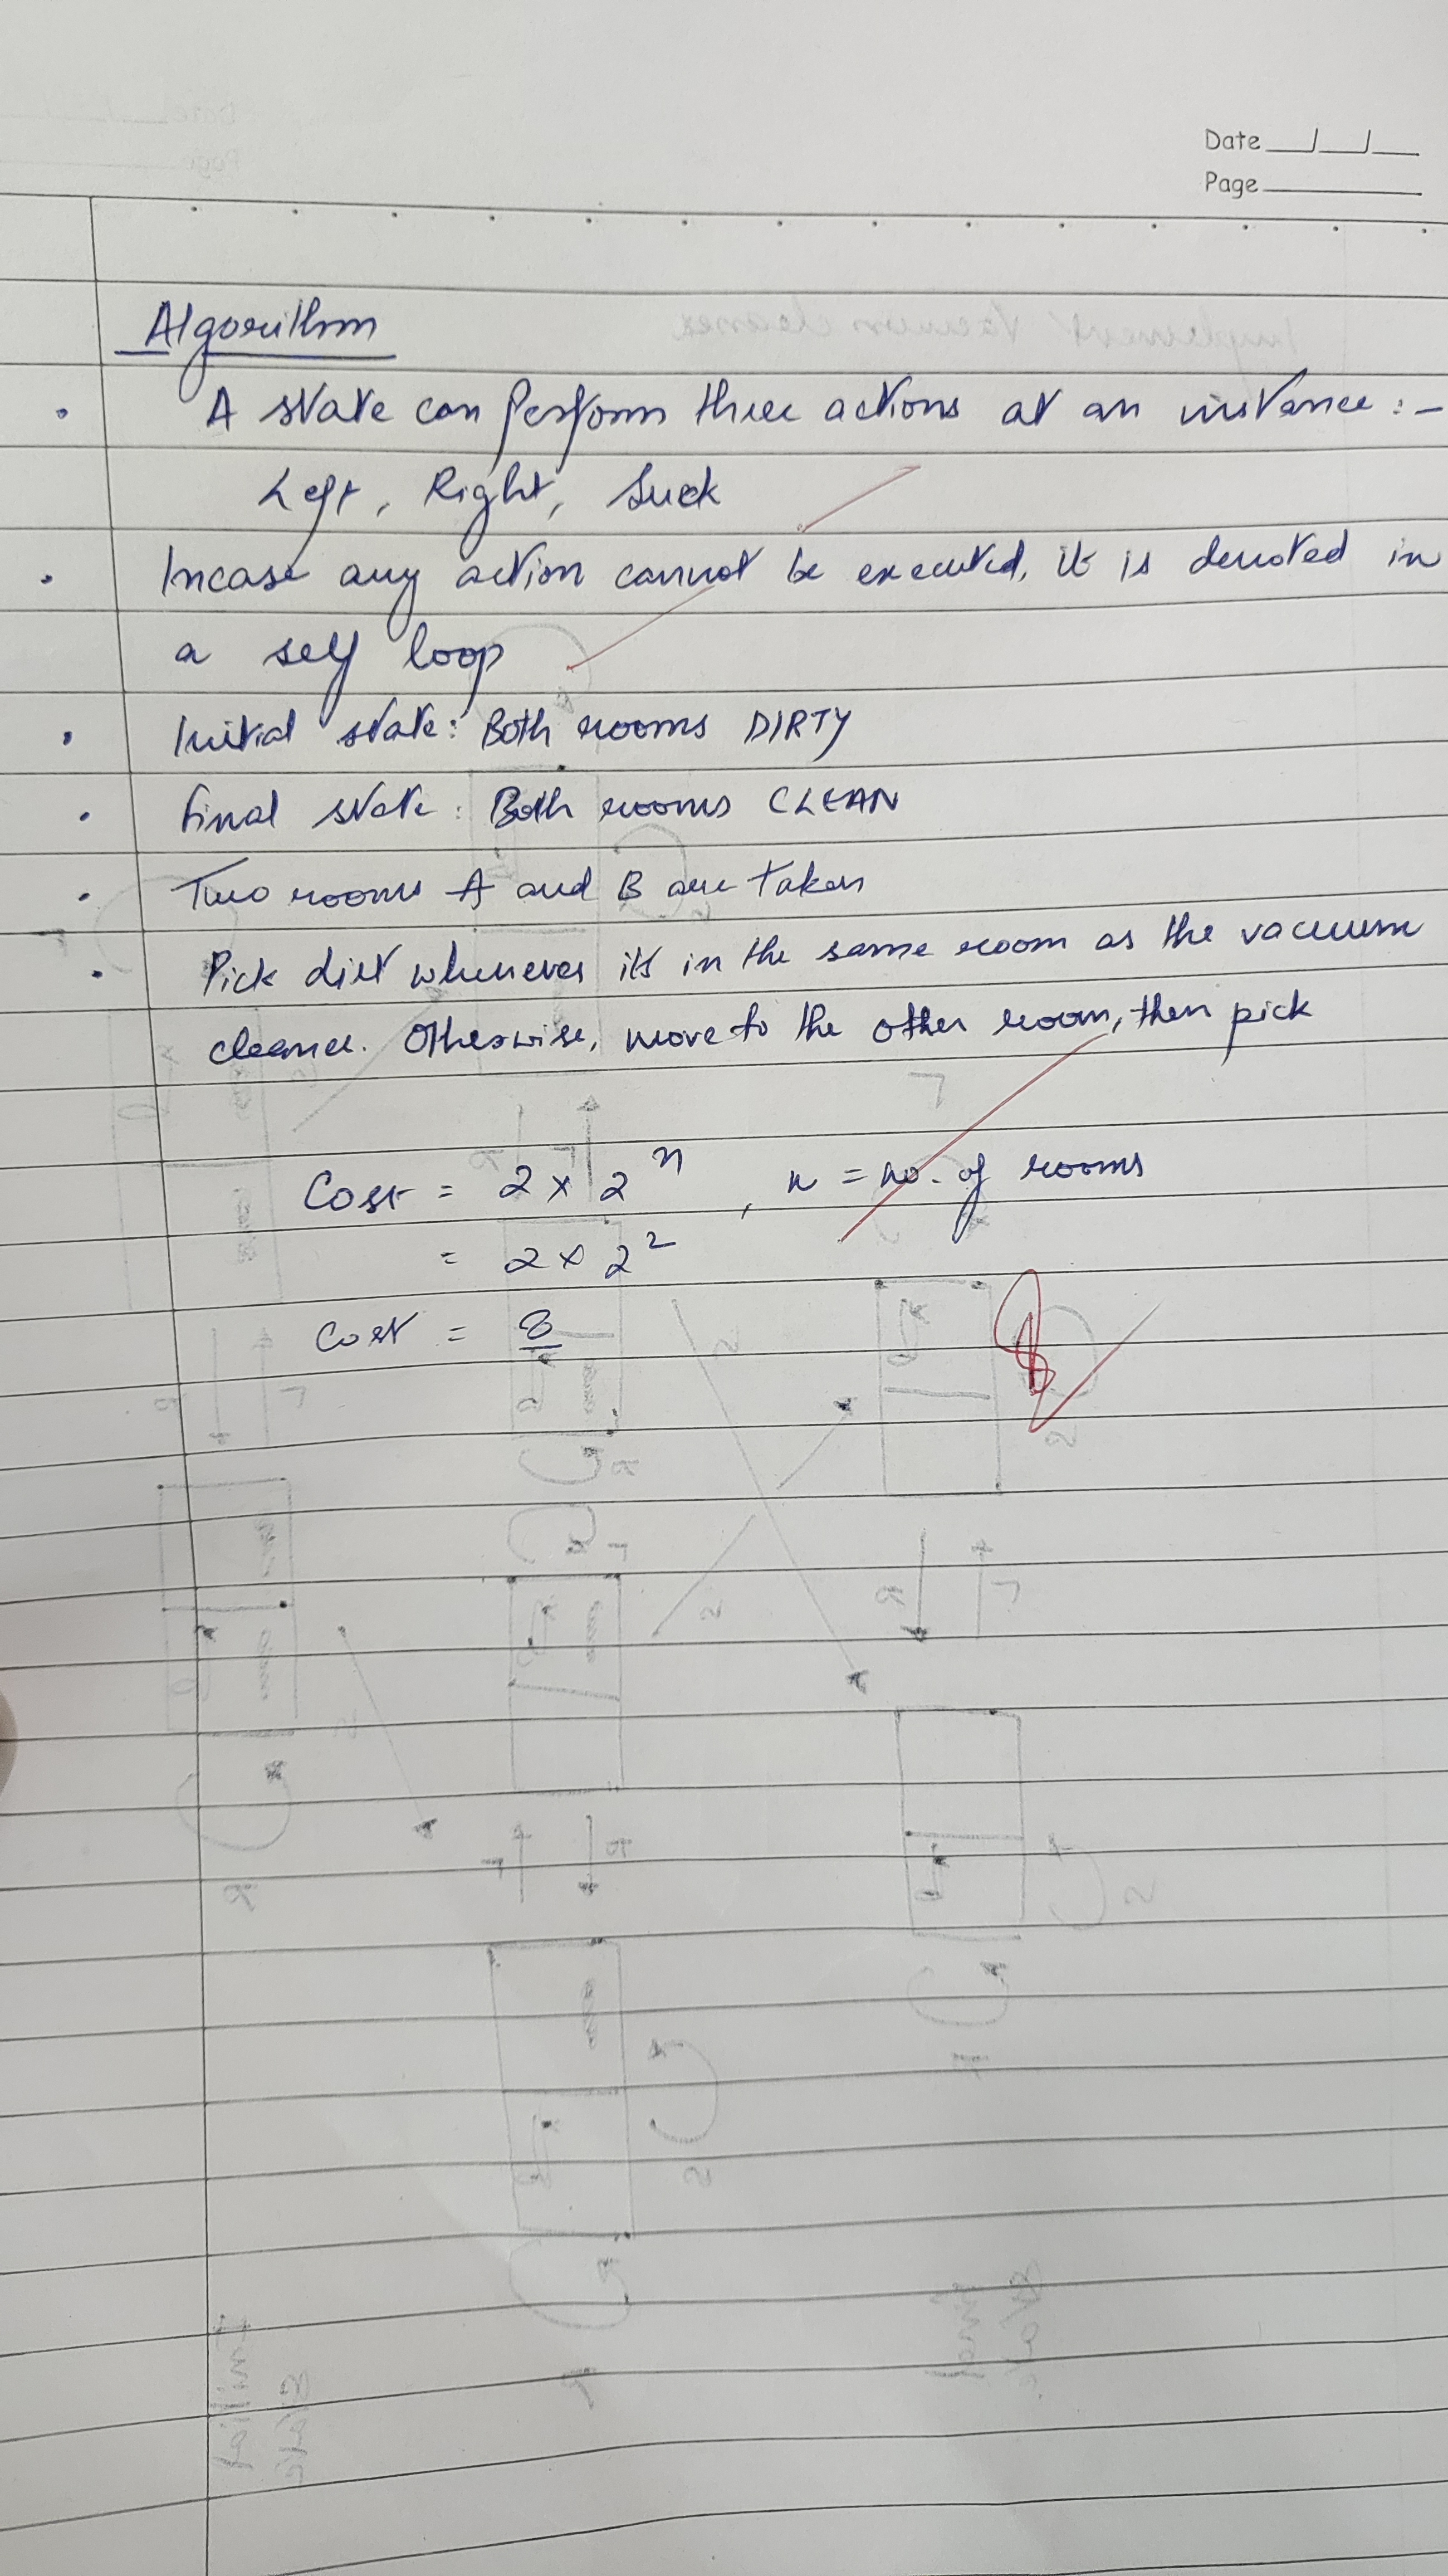 Date
Page
Algorithm
• A state can perform three actions at an instance :-
Left, Right, Suck
• Incase any action cannot be executed, it is denoted in
a self loop
• Initial state: Both rooms DIRTY
• Final state: Both rooms CLEAN
• Two rooms A and B are taken
• Pick dirt whenever its in the same room as the vacuum
cleaner. Otherwise, move to the other room, then pick
Cost = 2 x 2^n , n = no. of rooms
= 2 x 2^2
Cost = 8